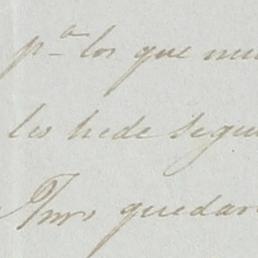 pª los que nue
les hede segui
Tros quedar